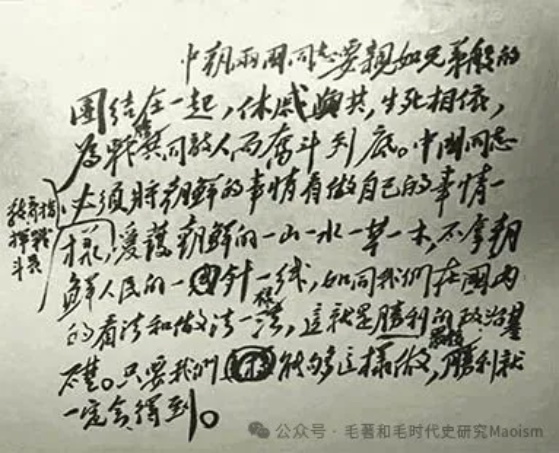 中朝两国同志要亲如兄弟般的
團结在一起，休戚與共，生死相依，
為战胜共同敌人而奋斗到底。中國同志
必须将朝鲜的事情看做自己的事情一
教育指
揮員战
斗員
样，爱護朝鲜的一山一水一草一木，不拿朝
鲜人民的一针一线，如同我们在國内
的看法和做法一样，這就是勝利的政治基
礎。只要我们能够這樣做，勝利就
一定会得到。
公众号 · 毛著和毛时代史研究Maoism